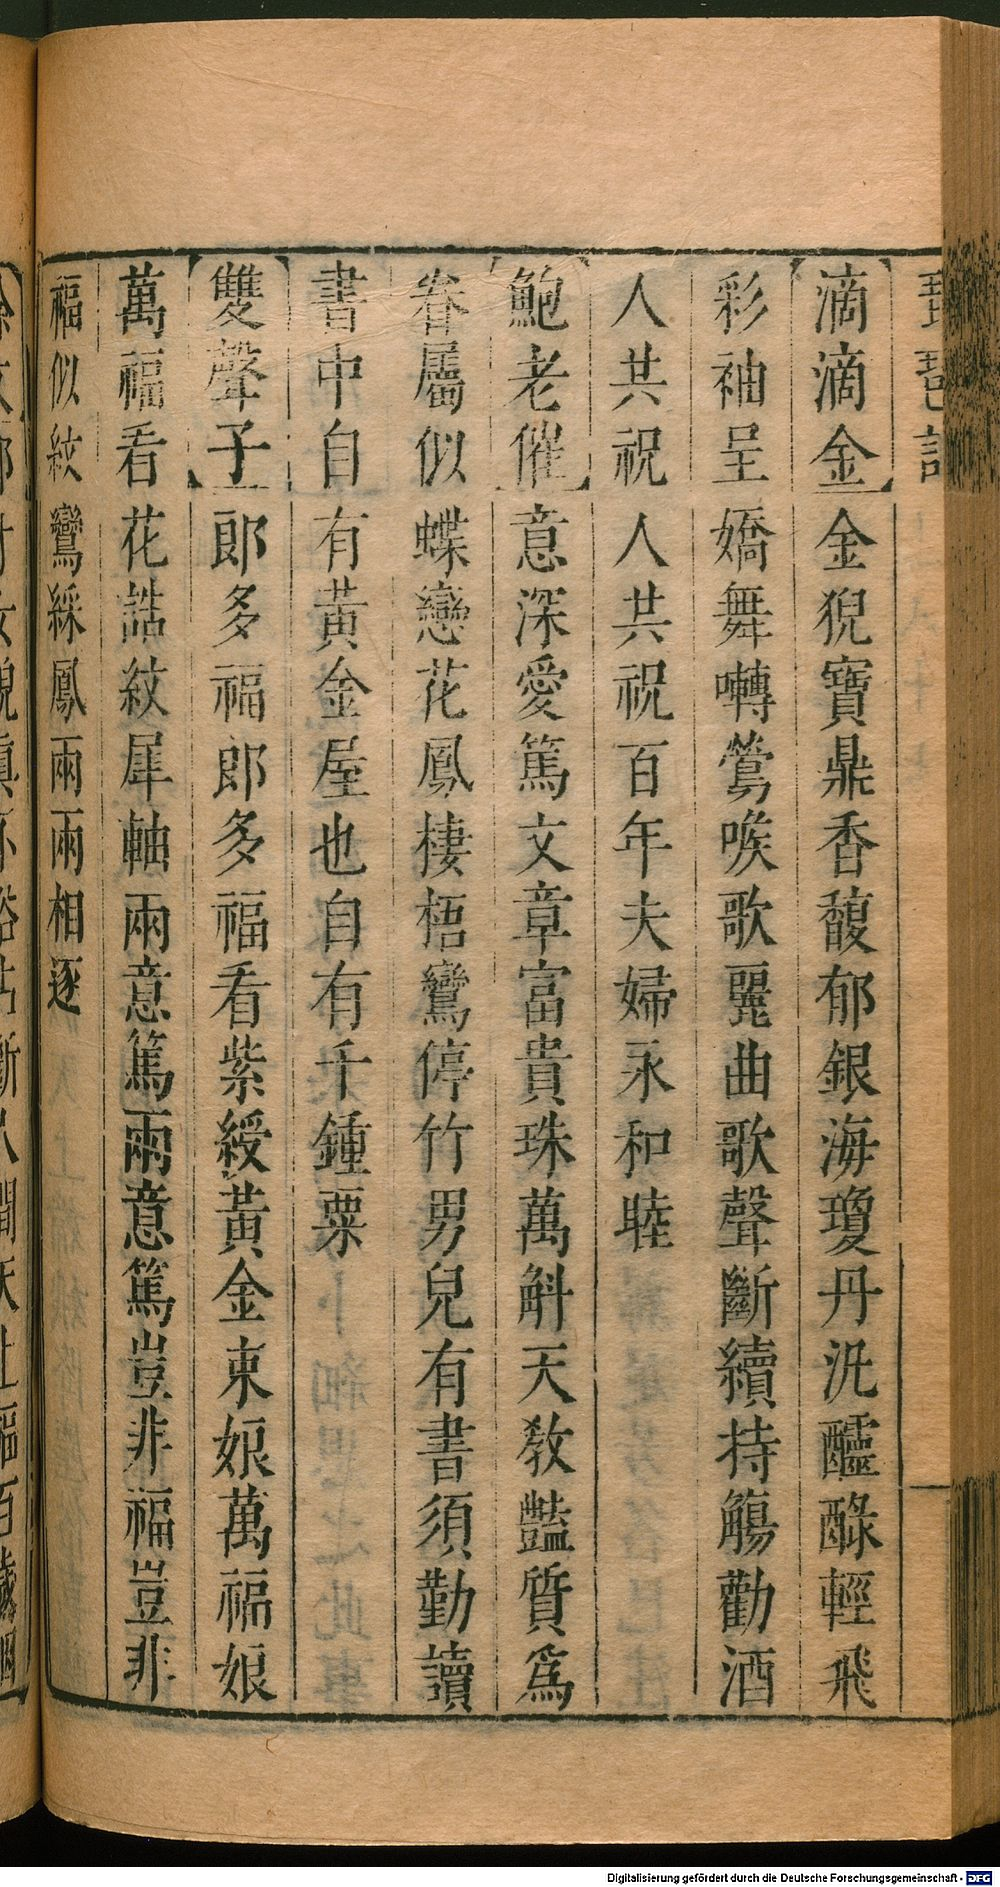 琵琶記
滴滴金 金猊寶鼎香馥郁銀海瓊丹泛醽醁輕飛
彩袖呈嬌舞囀鶯喉歌麗曲歌聲斷續持觴勸酒
人共祝人共祝百年夫婦永和睦
鮑老催 意深愛篤文章富貴珠萬斛天教豔質爲
眷屬似蝶戀花鳳棲梧鸞停竹男兒有書須勤讀
書中自有黃金屋也自有千鍾粟
雙聲子 郎多福郎多福看紫綬黃金束娘萬福娘
萬福看花誥紋犀軸兩意篤兩意篤豈非福豈非
福似紋鸞綵鳳兩兩相逐
Digitalisierung gefördert durch die Deutsche Forschungsgemeinschaft - DFG